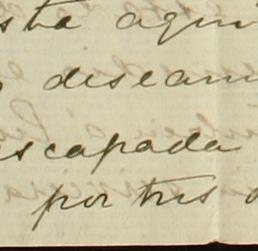 sta aqui
desean
scapada
por tres